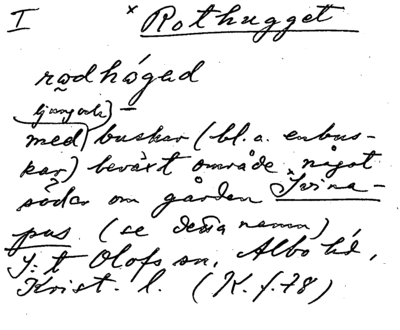 I × Rothugget
rødhóged
med buskar (bl.a. enbus-
kar) beväxt område något
söder om gården Svina-
pus (se detta namn)
T: t Olofsson, Albo hd,
Krist. l. (K.f.78)